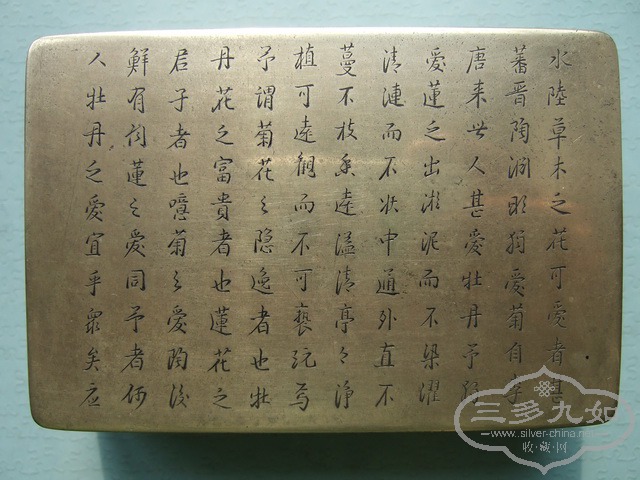 水陸草木之花可愛者甚
蕃晉陶淵明獨愛菊自李
唐来世人甚愛牡丹予獨
愛蓮之出淤泥而不染濯
清漣而不妖中通外直不
蔓不枝香遠溢清亭々淨
植可遠觀而不可褻玩焉
予謂菊花之隐逸者也牡
丹花之富貴者也蓮花之
君子者也噫菊之愛陶後
鮮有闻蓮之愛同予者何
人牡丹之愛宜乎衆矣
三多九如
www.silver-china.net
收·藏·网